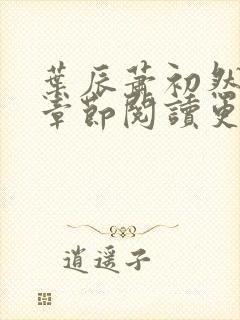 葉辰蕭初然
章節閱讀更
逍遙子